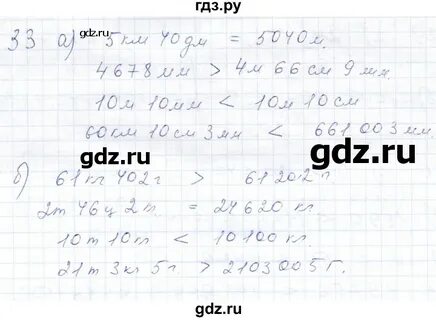 гдз.ру
33 а) 5 км 40 дм = 5040 м.
4678 мм > 4 м 66 см 9 мм.
10 м 10 мм < 10 м 10 см
gdz.ru gdz.ru
60 км 10 см 3 мм < 661 003 мм.
б) 61 кг 402 г > 61 202 г
2 т 46 ц 2 т. = 24620 кг.
gdz.ru
10 т 10 кг < 10 100 кг.
21 т 3 кг 5 г > 2103005 г.
gdz.ru